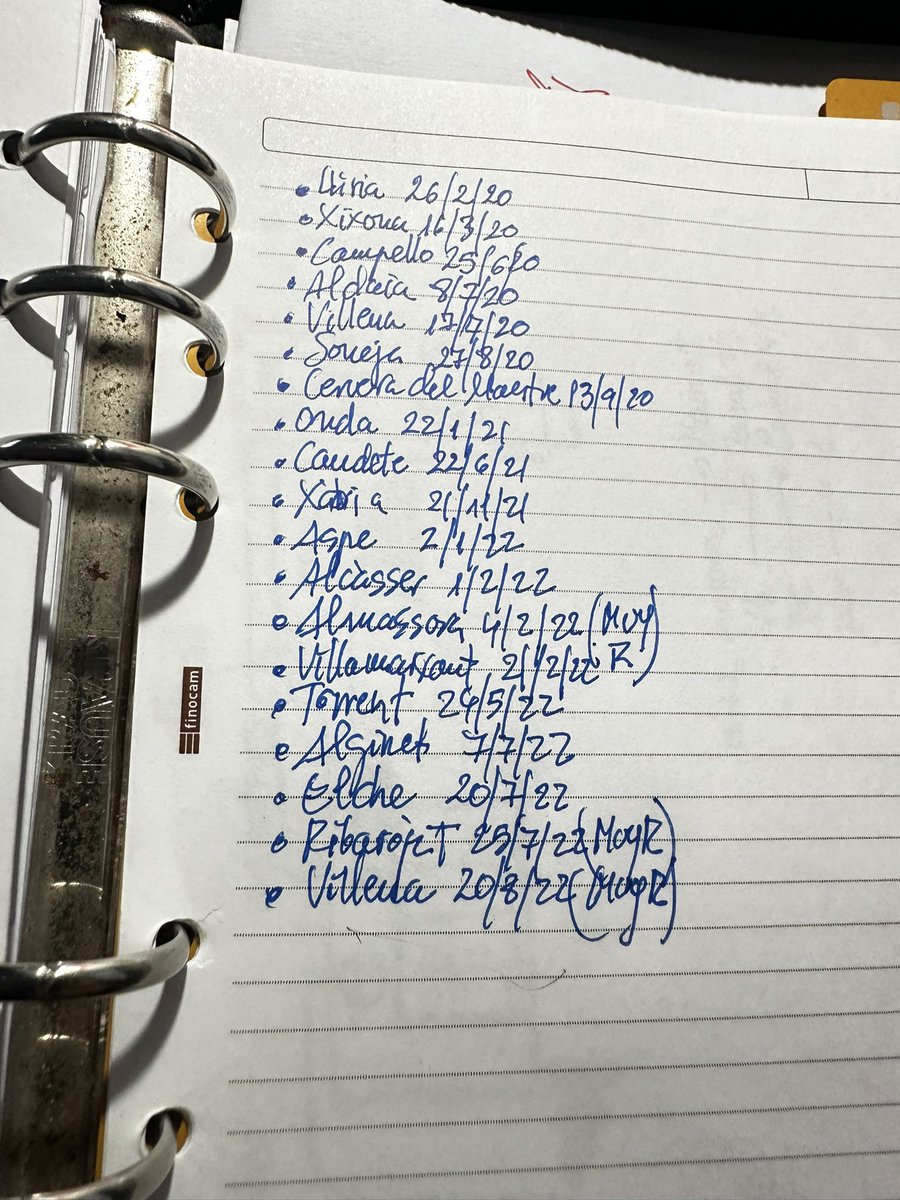 • Lliria 26/2/20
• Xixona 16/3/20
• Campello 25/6/20
• Aldaia 8/7/20
• Villena 17/7/20
• Soneja 27/8/20
• Cervera del Maestre 13/9/20
• Onda 22/1/21
• Caudete 22/6/21
• Xàbia 21/11/21
• Aspe 2/1/22
• Alcàsser 1/2/22
• Almassora 4/2/22 (M y
• Villamarxant 21/2/22 R)
• Torrent 24/5/22
• Alginet 7/7/22
• Elche 20/7/22
• Ribarojat 25/7/22 (M y R)
• Villena 20/8/22 (M y R)
finocam